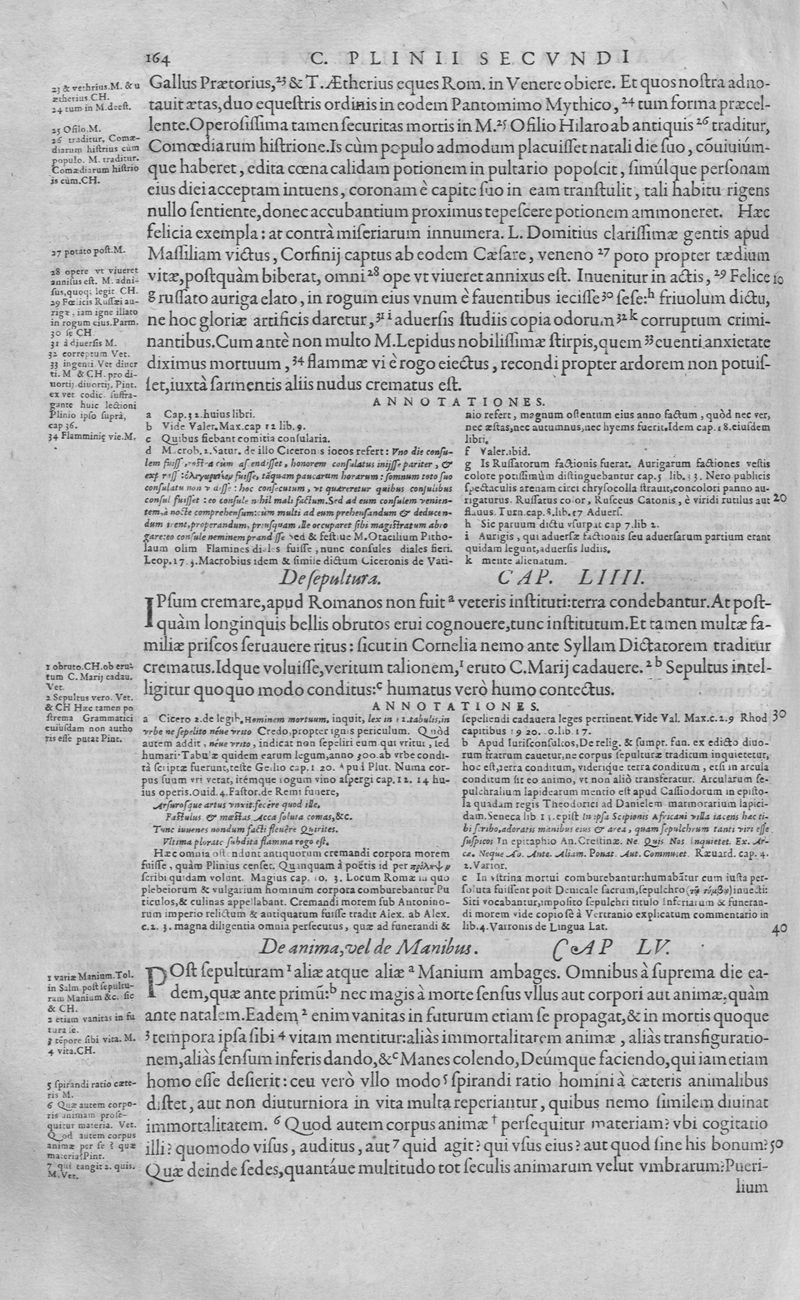 164 C. PLINII SECVNDI
23 & vethrius.M. & u
ætherius CH.
24 tum in M. deest.
25 Ofilo.M.
26 traditur, Comœ-
diarum histrius cùm
populo. M. traditur.
Comœdiarum histrio
is cùm.CH.
27 potato post.M.
28 opere vt viueret
annisus est. M. adni-
sus,quoq; legit CH.
29 Fœlicis Russæi au-
rigæ, iam igne illato
in rogum eius.Parm.
30 se CH.
31 à diuersis M.
32 correptum Vet.
33 ingenti Vet diuer
ti. M & CH. pro di-
uortij diuortij. Pint.
ex vet codic. suffra-
gante huic lectioni
Plinio ipso suprà,
cap 36.
34 Flamminię vie.M.
Gallus Prætorius,²³ & T.Ætherius eques Rom. in Venere obiere. Et quos nostra adno-
tauit ætas,duo equestris ordinis in eodem Pantomimo Mythico,²⁴ tum forma præcel-
lente.Operosissima tamen securitas mortis in M.²⁵ Ofilio Hilaro ab antiquis ²⁶ traditur,
Comœdiarum histrione.Is cùm populo admodum placuisset natali die suo, cõuiuiúm-
que haberet, edita cœna calidam potionem in pultario poposcit, simúlque personam
eius diei acceptam intuens, coronam è capite suo in eam transtulit, tali habitu rigens
nullo sentiente,donec accubantium proximus tepescere potionem ammoneret. Hæc
felicia exempla: at contrà miseriarum innumera. L. Domitius clarissimæ gentis apud
Massiliam victus, Corfinij captus ab eodem Cæsare, veneno ²⁷ poto propter tædium
vitæ,postquàm biberat, omni ²⁸ ope vt viueret annixus est. Inuenitur in actis, ²⁹ Felice 10
g russato auriga elato, in rogum eius vnum è fauentibus iecisse ³⁰ sese:h friuolum dictu,
ne hoc gloriæ artificis daretur,³¹ i aduersis studiis copia odorum ³² k corruptum crimi-
nantibus.Cum antè non multo M.Lepidus nobilissimæ stirpis,quem ³³ euenti anxietate
diximus mortuum, ³⁴ flammæ vi è rogo eiectus, recondi propter ardorem non potuis-
set,iuxtà sarmentis aliis nudus crematus est.
ANNOTATIONES.
a Cap.32.huius libri.
b Vide Valer.Max.cap 12 lib.9.
c Quibus fiebant comitia consularia.
d Macrob.2.Satur. de illo Ciceronis iocos refert: Vno die consu-
consulatu non
consul fuisset : eo consule nihil mali factum.Sed ad eum consulem venien-
tem,à nocte comprehensum:cùm multi ad eum prehensandum & deducen-
laum olim Flamines diales fuisse, nunc consules diales fieri.
Leop.17.3.Macrobius idem & simile dictum Ciceronis de Vati-
aio refert, magnum ostentum eius anno factum, quòd nec ver,
nec æstas,nec autumnus,nec hyems fuerit.Idem cap.18.eiusdem
libri.
f Valer.ibid.
g Is Russatorum factionis fuerat. Aurigarum factiones vestis
colore potissimùm distinguebantur cap.5 lib.33. Nero publicis
spectaculis arenam circi chrysocolla strauit,concolori panno au-
rigaturus. Russatus color, Rufseus Catonis, è viridi rutilus aut 20
flauus. Turn.cap.8.lib.17 Aduers.
h Sic paruum dictu vsurpat cap 7.lib 2.
i Aurigis, qui aduersæ factionis seu aduersarum partium erant
quidam legunt,aduersis ludiis.
k mente alienatum.
De sepultura. CAP. LIIII.
1 obruto.CH.ob eru-
tum C. Marij cadau.
Vet.
2 Sepultus vero. Vet.
& CH Hæc tamen po
strema Grammatici
cuiusdam non autho
ris esse putat Pint.
IPsum cremare,apud Romanos non fuit a veteris instituti:terra condebantur.At post-
quàm longinquis bellis obrutos erui cognouere,tunc institutum.Et tamen multæ fa-
miliæ priscos seruauere ritus: sicut in Cornelia nemo ante Syllam Dictatorem traditur
crematus.Idque voluisse,veritum talionem,¹ eruto C.Marij cadauere. ² b Sepultus intel-
ligitur quoquo modo conditus:c humatus verò humo contectus.
ANNOTATIONES.
a Cicero 2.de legib.Hominem mortuum, inquit, lex in 12.tabulis,in
vrbe ne sepelito néue vrito Credo,propter ignis periculum. Quòd
autem addit, néue vrito, indicat non sepeliri eum qui vritur, sed
humari.Tabulæ quidem earum legum,anno 300.ab vrbe condi-
pus suum vri vetat, itémque rogum vino aspergi cap.12. 14 hu-
ius operis.Ouid.4.Fastor.de Remi funere,
Arsurosque artus vnxit:fecêre quod illæ,
Faustulus & mœstas Acca soluta comas,&c.
Tunc iuuenes nondum facti fleuêre Quirites.
Vltima plorato subdita flamma rogo est.
Hæc omnia ostendunt antiquorum cremandi corpora morem
scribi quidam volunt. Magius cap.10. 3. Locum Romæ in quo
plebeiorum & vulgarium hominum corpora comburebantur Pu
ticulos,& culinas appellabant. Cremandi morem sub Antonino-
rum imperio relictum & antiquatum fuisse tradit Alex. ab Alex.
c.2. 3. magna diligentia omnia persecutus, quæ ad funerandi &
sepeliendi cadauera leges pertinent.Vide Val. Max.c.2.9 Rhod 30
b Apud Iurisconsultos,De relig. & sumpt. fun. ex edicto diuo-
rum fratrum cauetur,ne corpus sepulturæ traditum inquietetur,
hoc est,terra conditum, vidérique terra conditum, etsi in arcula
conditum sit eo animo, vt non aliò transferatur. Arcularum se-
pulchralium lapidearum mentio est apud Cassiodorum in episto-
la quadam regis Theodorici ad Danielem marmorarium lapici-
dam.Seneca lib 13.epist In ipsa Scipionis Africani villa iacens hæc ti-
bi scribo,adoratis manibus eius & area, quam sepulchrum tanti viri esse
suspicor In epitaphio An.Crestinæ. Ne Quis. Nos Inquietet. Ex. Ar-
ca. Neque Ao. Ante. Aliam. Ponat. Aut. Commutet. Ræuard. cap.4.
2.Varior.
c In vstrina mortui comburebantur:humabãtur cum iusta per-
Siti vocabantur,imposito sepulchri titulo inferiarum & funeran-
di morem vide copiosè à Vertranio explicatum commentario in
lib.4.Varronis de Lingua Lat. 40
De anima,vel de Manibus. CAP LV.
1 variæ Manium.Tol.
in Salm post sepultu-
ram Manium &c. sic
& CH.
2 etiam vanitas in fu
tura se.
3 tẽpore sibi vita. M.
4 vita.CH.
5 spirandi ratio cæte-
ris M.
6 Quæ autem corpo-
ris animam prose-
quitur materia. Vet.
Quod autem corpus
animæ per se? quæ
materia?Pint.
7 qui tangit 2. quis.
M.Vet.
POst sepulturam ¹ aliæ atque aliæ a Manium ambages. Omnibus à suprema die ea-
dem,quæ ante primũ:b nec magis à morte sensus vllus aut corpori aut animæ,quàm
ante natalem.Eadem ² enim vanitas in futurum etiam se propagat,& in mortis quoque
³ tempora ipsa sibi ⁴ vitam mentitur:aliàs immortalitatem animæ, aliàs transfiguratio-
nem,aliàs sensum inferis dando,& c Manes colendo,Deúmque faciendo,qui iam etiam
homo esse desierit:ceu verò vllo modo ⁵ spirandi ratio homini à cæteris animalibus
distet, aut non diuturniora in vita multa reperiantur, quibus nemo similem diuinat
immortalitatem. ⁶ Quod autem corpus animæ † persequitur materiam? vbi cogitatio
illi? quomodo visus, auditus, aut ⁷ quid agit? qui vsus eius? aut quod sine his bonum? 50
Quæ deinde sedes,quantáue multitudo tot seculis animarum velut vmbrarum?Pueri-
lium